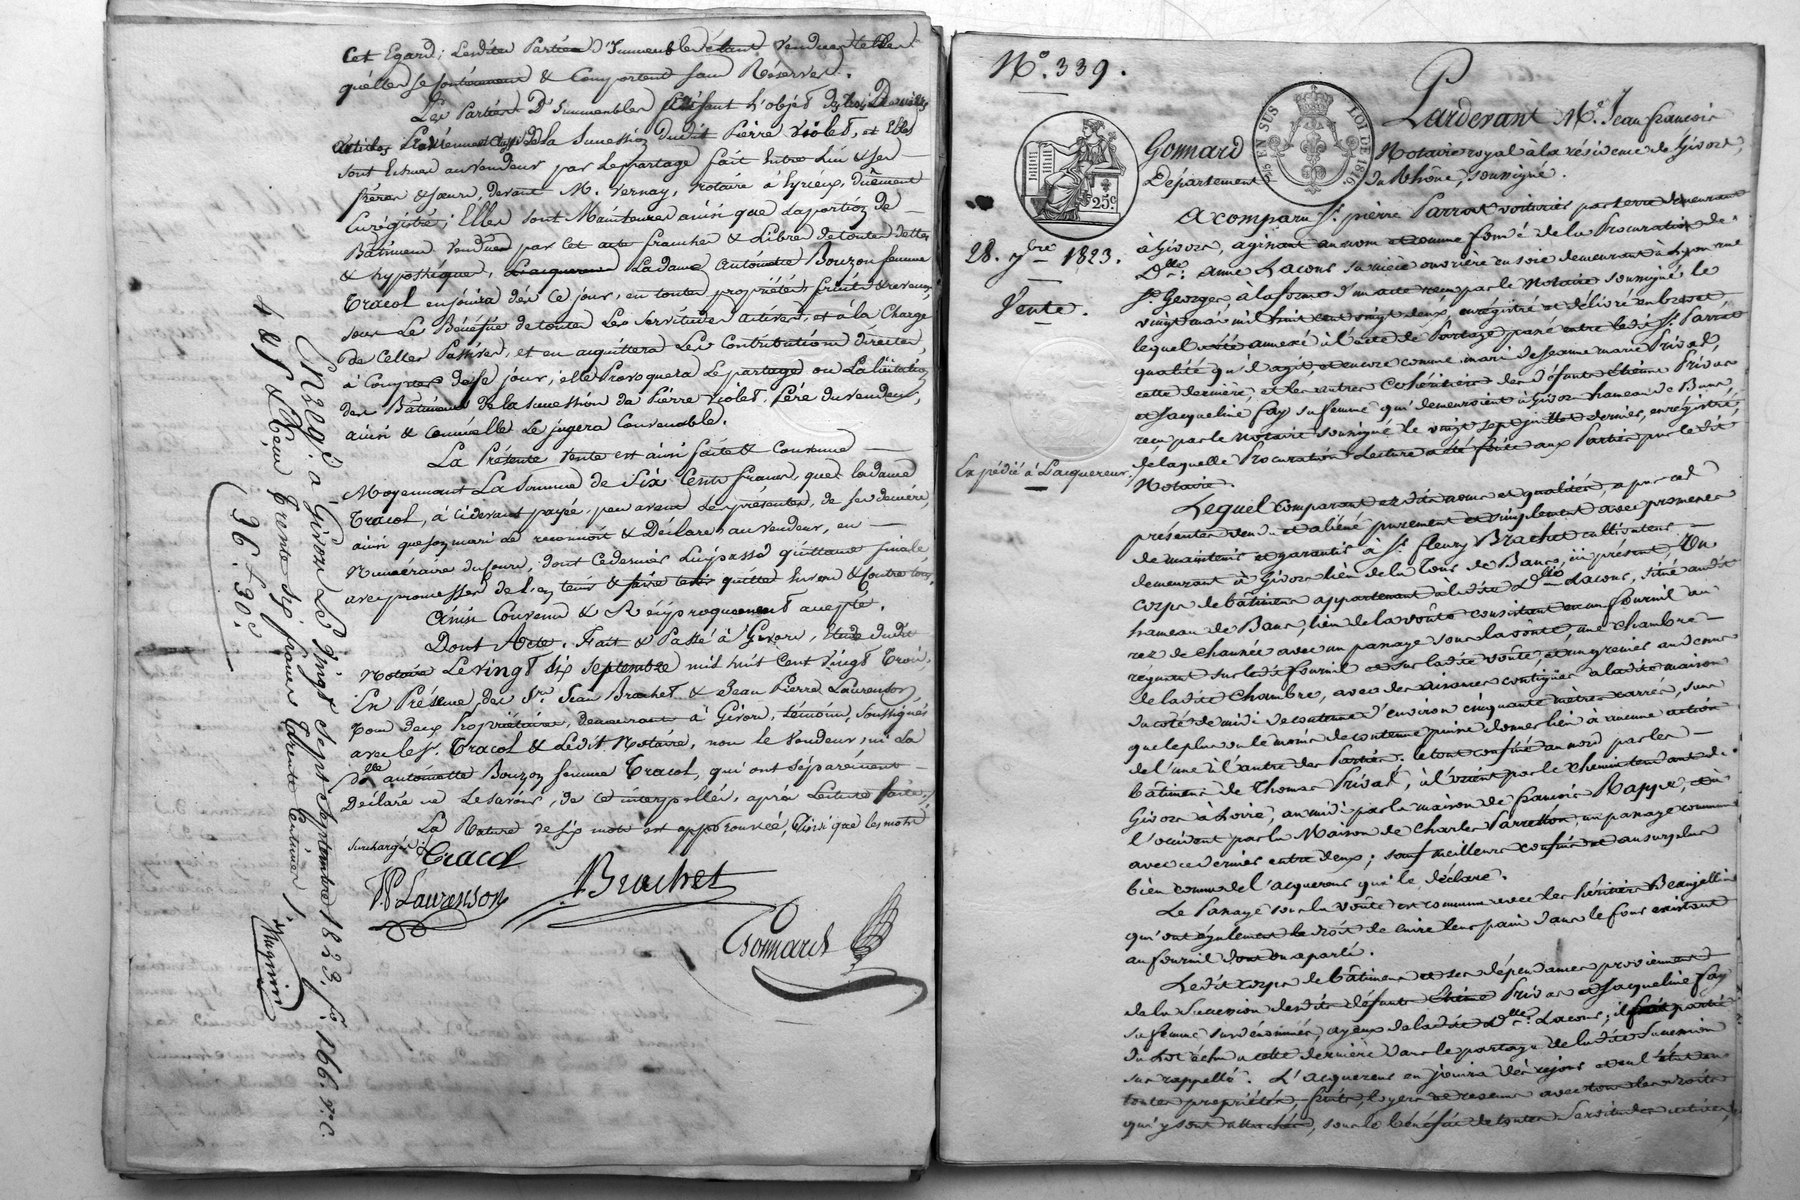 Cet Egard; Lesdites Parties D'Immeubles étant vendues telles
qu'elles se contiennent & Comportent sans Réserves.
Les Parties D'Immeubles faisant l'objet des
articles Proviennent de la Succession dudit Pierre Violet, et Elles
sont Echues au vendeur par Le partage fait Entre Lui & ses
frères & sœurs, devant M. Vernay, notaire à hyrieux, duement
Enrégistré; Elles sont Maintenues ainsi que la portion de
Bâtimens vendue par cet acte franches & Libres de toutes dettes
& hypothéques, La dame Antoinette Bouzon femme
Tracol en jouira dès ce jour, en toutes propriétés fruits & revenus,
sous Le Bénéfice de toutes Les servitudes actives, et à la Charge
de Celles Passives, et en acquittera Les Contributions directes,
à Compter de ce jour; elle Provoquera Le partage ou La licitation
des Bâtimens de la succession de Pierre Violet. Père du vendeur,
ainsi & comme elle Le jugera Convenable.
La Présente vente est ainsi faite & Convenue
Moyennant La Somme de Six Cents francs, que la dame
Tracol, à Cidevant payée, peu avant Les présentes, de ses deniers,
ainsi que son mari de reconnoit & Déclare, au vendeur, en
Numéraire du Cours, dont Ce dernier Lui passe quittance finale
avec promesses de L'en tenir & faire tenir quitte Envers & Contre tous.
Ainsi Convenu & Réciproquement accepté.
Dont Acte. Fait & Passé à Givors, Etude dudit
Notaire Le vingt six septembre mil huit Cent vingt Trois,
En Présence des Srs Jean Brachet & Jean Pierre Laurenson,
Tous deux Propriétaires, demeurant à Givors, témoins, Soussignés
avec le Sr. Tracol & Ledit Notaire, non le Vendeur, ni La
De. antoinette Bouzon femme Tracol, qui ont séparément
Déclaré ne Le savoir, de ce interpellés, après Lecture faite;
La Rature de six mots est approuvée, Ainsi que les mots
surchargés.
Tracol
J P Laurenson
J Brachet
Gonnard
Enreg.é à Givors Le Vingt Sept Septembre 1823, fo. 166. v. C.
4 & 5 & Reçu trente six francs trente Centimes
36 f. 30 c.
Magnin
No. 339.
28. 7bre 1823.
Vente.
Expédié à L'acquereur.
25 c.
25 EN SUS
LOI DE 1816.
Pardevant Me. Jean françois
Gonnard Notaire royal à la résidence de Givors,
Département du Rhône, soussigné.
A comparu Sr. pierre Parrot voiturier par terre demeurant
à Givors, agissant au nom et comme fondé de la Procuration de
Dlle. anne Lacour sa nièce ouvrière en soie demeurant à Lyon rue
St. Georges, à la forme d'un acte reçu par le Notaire soussigné, le
vingt mai mil huit cent vingt deux, enrégistré et délivré en brevet,
lequel est annexé à l'acte de Partage passé entre ledit Sr. Parrot
qualité qu'il agit, et encore comme mari de Jeanne marie Privat,
cette dernière, et les autres Cohéritiers des défunts Etienne Privas
et Jacqueline fay sa femme qui demeuroient à Givors hameau de Bans,
reçu par le Notaire soussigné le vingt sept juillet dernier, enrégistré,
de laquelle Procuration Lecture a été faite aux Parties par ledit
Notaire.
Lequel comparant esdits noms et qualités, a par ces
présentes vendu et aliéné purement et simplement avec promesse
de maintenir et garantir à Sr. fleury Brachet cultivateur
demeurant à Givors lieu de la Tour de Bans, ici présent, Un
corps de bâtimens appartenant à ladite Dlle. Lacour, situé audit
hameau de Bans, lieu de la voûte consistant en un fournil au
rez de chaussée avec un passage sous la voûte, une chambre
régnant sur ledit fournil et sur ladite voûte, et un grenier au dessus
de ladite Chambre, avec des aisances contigües à ladite maison
du coté de midi de contenue d'environ cinquante mètres carrés, sans
que le plus ou le moins de contenue puisse donner lieu à aucune action
de l'une à l'autre des Parties. le tout confiné au nord par les
bâtimens de Thomas Privat, à l'orient par le Chemin tendant de
Givors à Loire, au midi par la maison de françois Rappe, et à
l'occident par la Maison de Charles Parretton, un passage commun
avec ce dernier entre deux; sauf meilleurs confins et au surplus
bien connu de l'acquereur qui le déclare.
Le Passage sous la voûte est commun avec les héritiers Beaujellin
qui ont également le droit de cuire leur pain dans le four existant
au fournil dont on a parlé.
Ledit corps de bâtimens et ses dépendances proviennent
de la Succession desdits défunts Etienne Privas et Jacqueline fay
sa femme surdénommés, ayeux de ladite Dlle. Lacour; il fait partie
du Lot échu à cette dernière dans le partage de ladite Succession
sus rappellé. L'acquereur en jouira dès ce jour et en l'état en
toutes propriétés fruits, loyers et revenus avec tous les droits
qui y sont attachés, sous le bénéfice de toutes Servitudes actives,